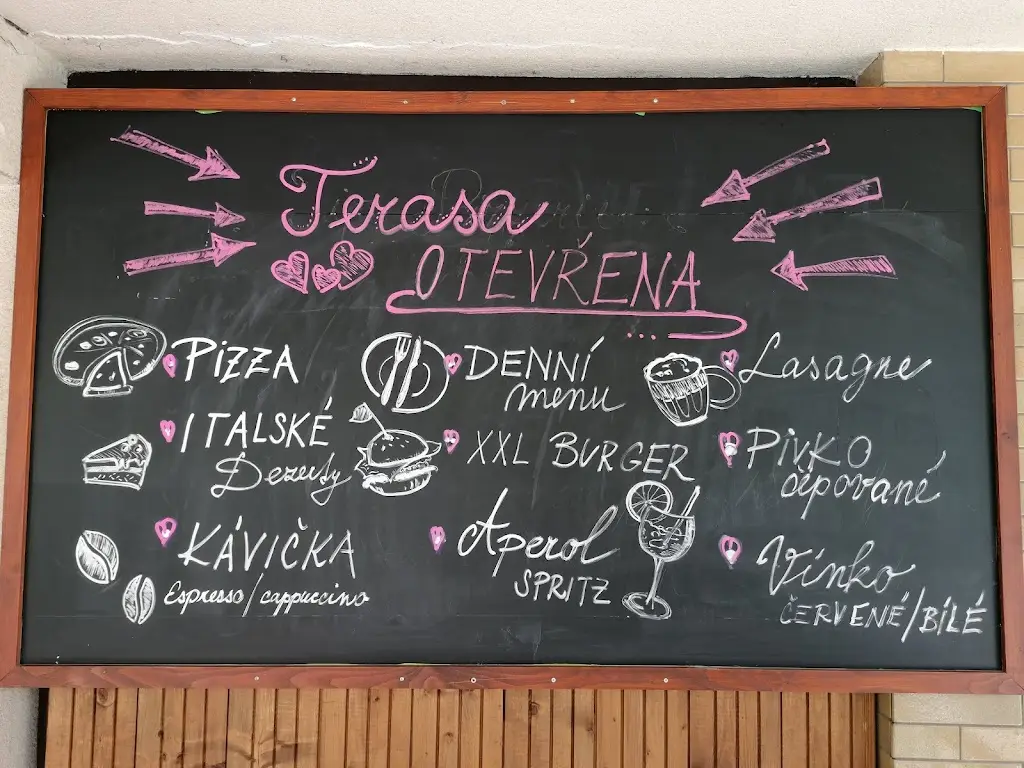 Terasa
OTEVŘENA
PIZZA
ITALSKÉ
Dezerty
KÁVIČKA
Espresso/cappuccino
DENNÍ
menu
XXL BURGER
Aperol
SPRITZ
Lasagne
PIVKO
čepované
Vínko
ČERVENÉ/BÍLÉ